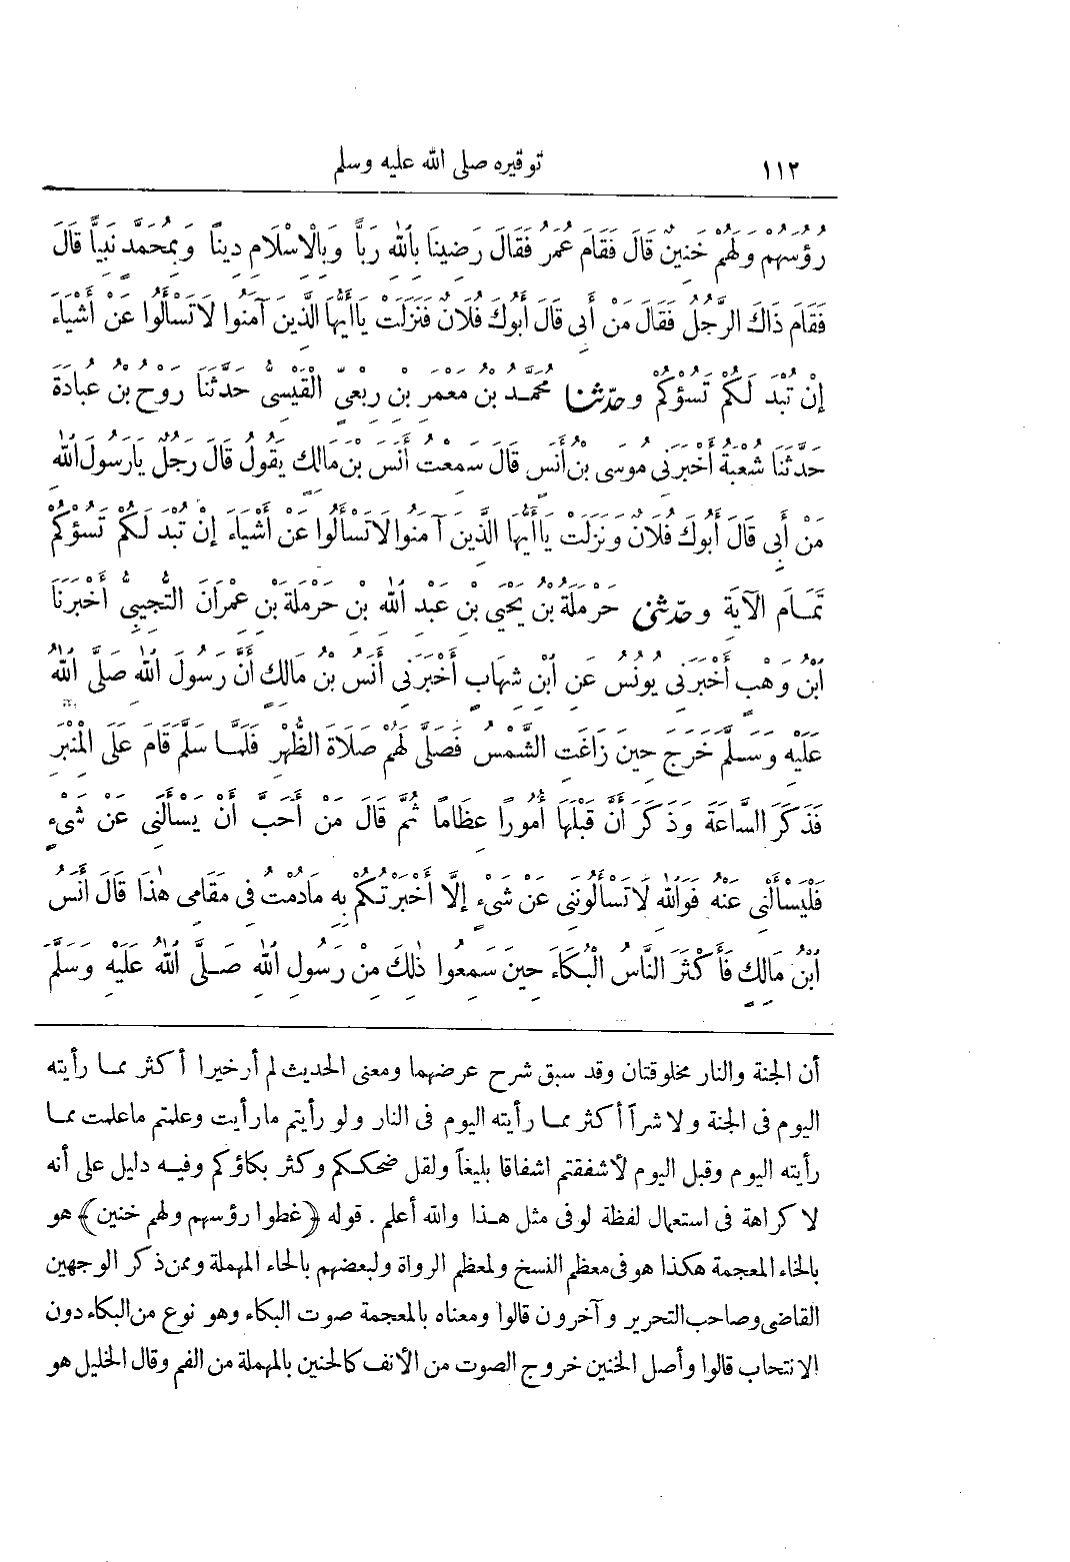 ١١٢ توقيره صلى الله عليه وسلم
رُؤُسَهُمْ وَلَهُمْ خَنِينٌ قَالَ فَقَامَ عُمَرُ فَقَالَ رَضِينَا بِاللهِ رَبًّا وَبِالْإِسْلَامِ دِينًا وَبِمُحَمَّدٍ نَبِيًّا قَالَ
فَقَامَ ذَاكَ الرَّجُلُ فَقَالَ مَنْ أَبِى قَالَ أَبُوكَ فُلَانٌ فَنَزَلَتْ يَاأَيُّهَا الَّذِينَ آمَنُوا لَا تَسْأَلُوا عَنْ أَشْيَاءَ
إِنْ تُبْدَ لَكُمْ تَسُؤْكُمْ وحدّثنا مُحَمَّدُ بْنُ مَعْمَرِ بْنِ رِبْعِيٍّ الْقَيْسِىُّ حَدَّثَنَا رَوْحُ بْنُ عُبَادَةَ
حَدَّثَنَا شُعْبَةُ أَخْبَرَنِى مُوسَى بْنُ أَنَسٍ قَالَ سَمِعْتُ أَنَسَ بْنَ مَالِكٍ يَقُولُ قَالَ رَجُلٌ يَارَسُولَ اللهِ
مَنْ أَبِى قَالَ أَبُوكَ فُلَانٌ وَنَزَلَتْ يَاأَيُّهَا الَّذِينَ آمَنُوا لَا تَسْأَلُوا عَنْ أَشْيَاءَ إِنْ تُبْدَ لَكُمْ تَسُؤْكُمْ
تَمَامَ الْآيَةِ وحدّثنى حَرْمَلَةُ بْنُ يَحْيَى بْنِ عَبْدِ اللهِ بْنِ حَرْمَلَةَ بْنِ عِمْرَانَ التُّجِيبِىُّ أَخْبَرَنَا
ابْنُ وَهْبٍ أَخْبَرَنِى يُونُسُ عَنِ ابْنِ شِهَابٍ أَخْبَرَنِى أَنَسُ بْنُ مَالِكٍ أَنَّ رَسُولَ اللهِ صَلَّى اللهُ
عَلَيْهِ وَسَلَّمَ خَرَجَ حِينَ زَاغَتِ الشَّمْسُ فَصَلَّى لَهُمْ صَلَاةَ الظُّهْرِ فَلَمَّا سَلَّمَ قَامَ عَلَى الْمِنْبَرِ
فَذَكَرَ السَّاعَةَ وَذَكَرَ أَنَّ قَبْلَهَا أُمُورًا عِظَامًا ثُمَّ قَالَ مَنْ أَحَبَّ أَنْ يَسْأَلَنِى عَنْ شَىْءٍ
فَلْيَسْأَلْنِى عَنْهُ فَوَاللهِ لَا تَسْأَلُونَنِى عَنْ شَىْءٍ إِلَّا أَخْبَرْتُكُمْ بِهِ مَادُمْتُ فِى مَقَامِى هٰذَا قَالَ أَنَسُ
ابْنُ مَالِكٍ فَأَكْثَرَ النَّاسُ الْبُكَاءَ حِينَ سَمِعُوا ذٰلِكَ مِنْ رَسُولِ اللهِ صَلَّى اللهُ عَلَيْهِ وَسَلَّمَ
أن الجنة والنار مخلوقتان وقد سبق شرح عرضهما ومعنى الحديث لم أر خيرا أكثر مما رأيته
اليوم فى الجنة ولا شراً أكثر مما رأيته اليوم فى النار ولو رأيتم مارأيت وعلمتم ماعلمت مما
رأيته اليوم وقبل اليوم لأشفقتم اشفاقا بليغاً ولقل ضحككم وكثر بكاؤكم وفيه دليل على أنه
لا كراهة فى استعمال لفظة لو فى مثل هذا والله أعلم . قوله ﴿غطوا رؤسهم ولهم خنين﴾ هو
بالخاء المعجمة هكذا هو فى معظم النسخ ولمعظم الرواة ولبعضهم بالحاء المهملة وممن ذكر الوجهين
القاضى وصاحب التحرير وآخرون قالوا ومعناه بالمعجمة صوت البكاء وهو نوع من البكاء دون
الانتحاب قالوا وأصل الخنين خروج الصوت من الأنف كالحنين بالمهملة من الفم وقال الخليل هو